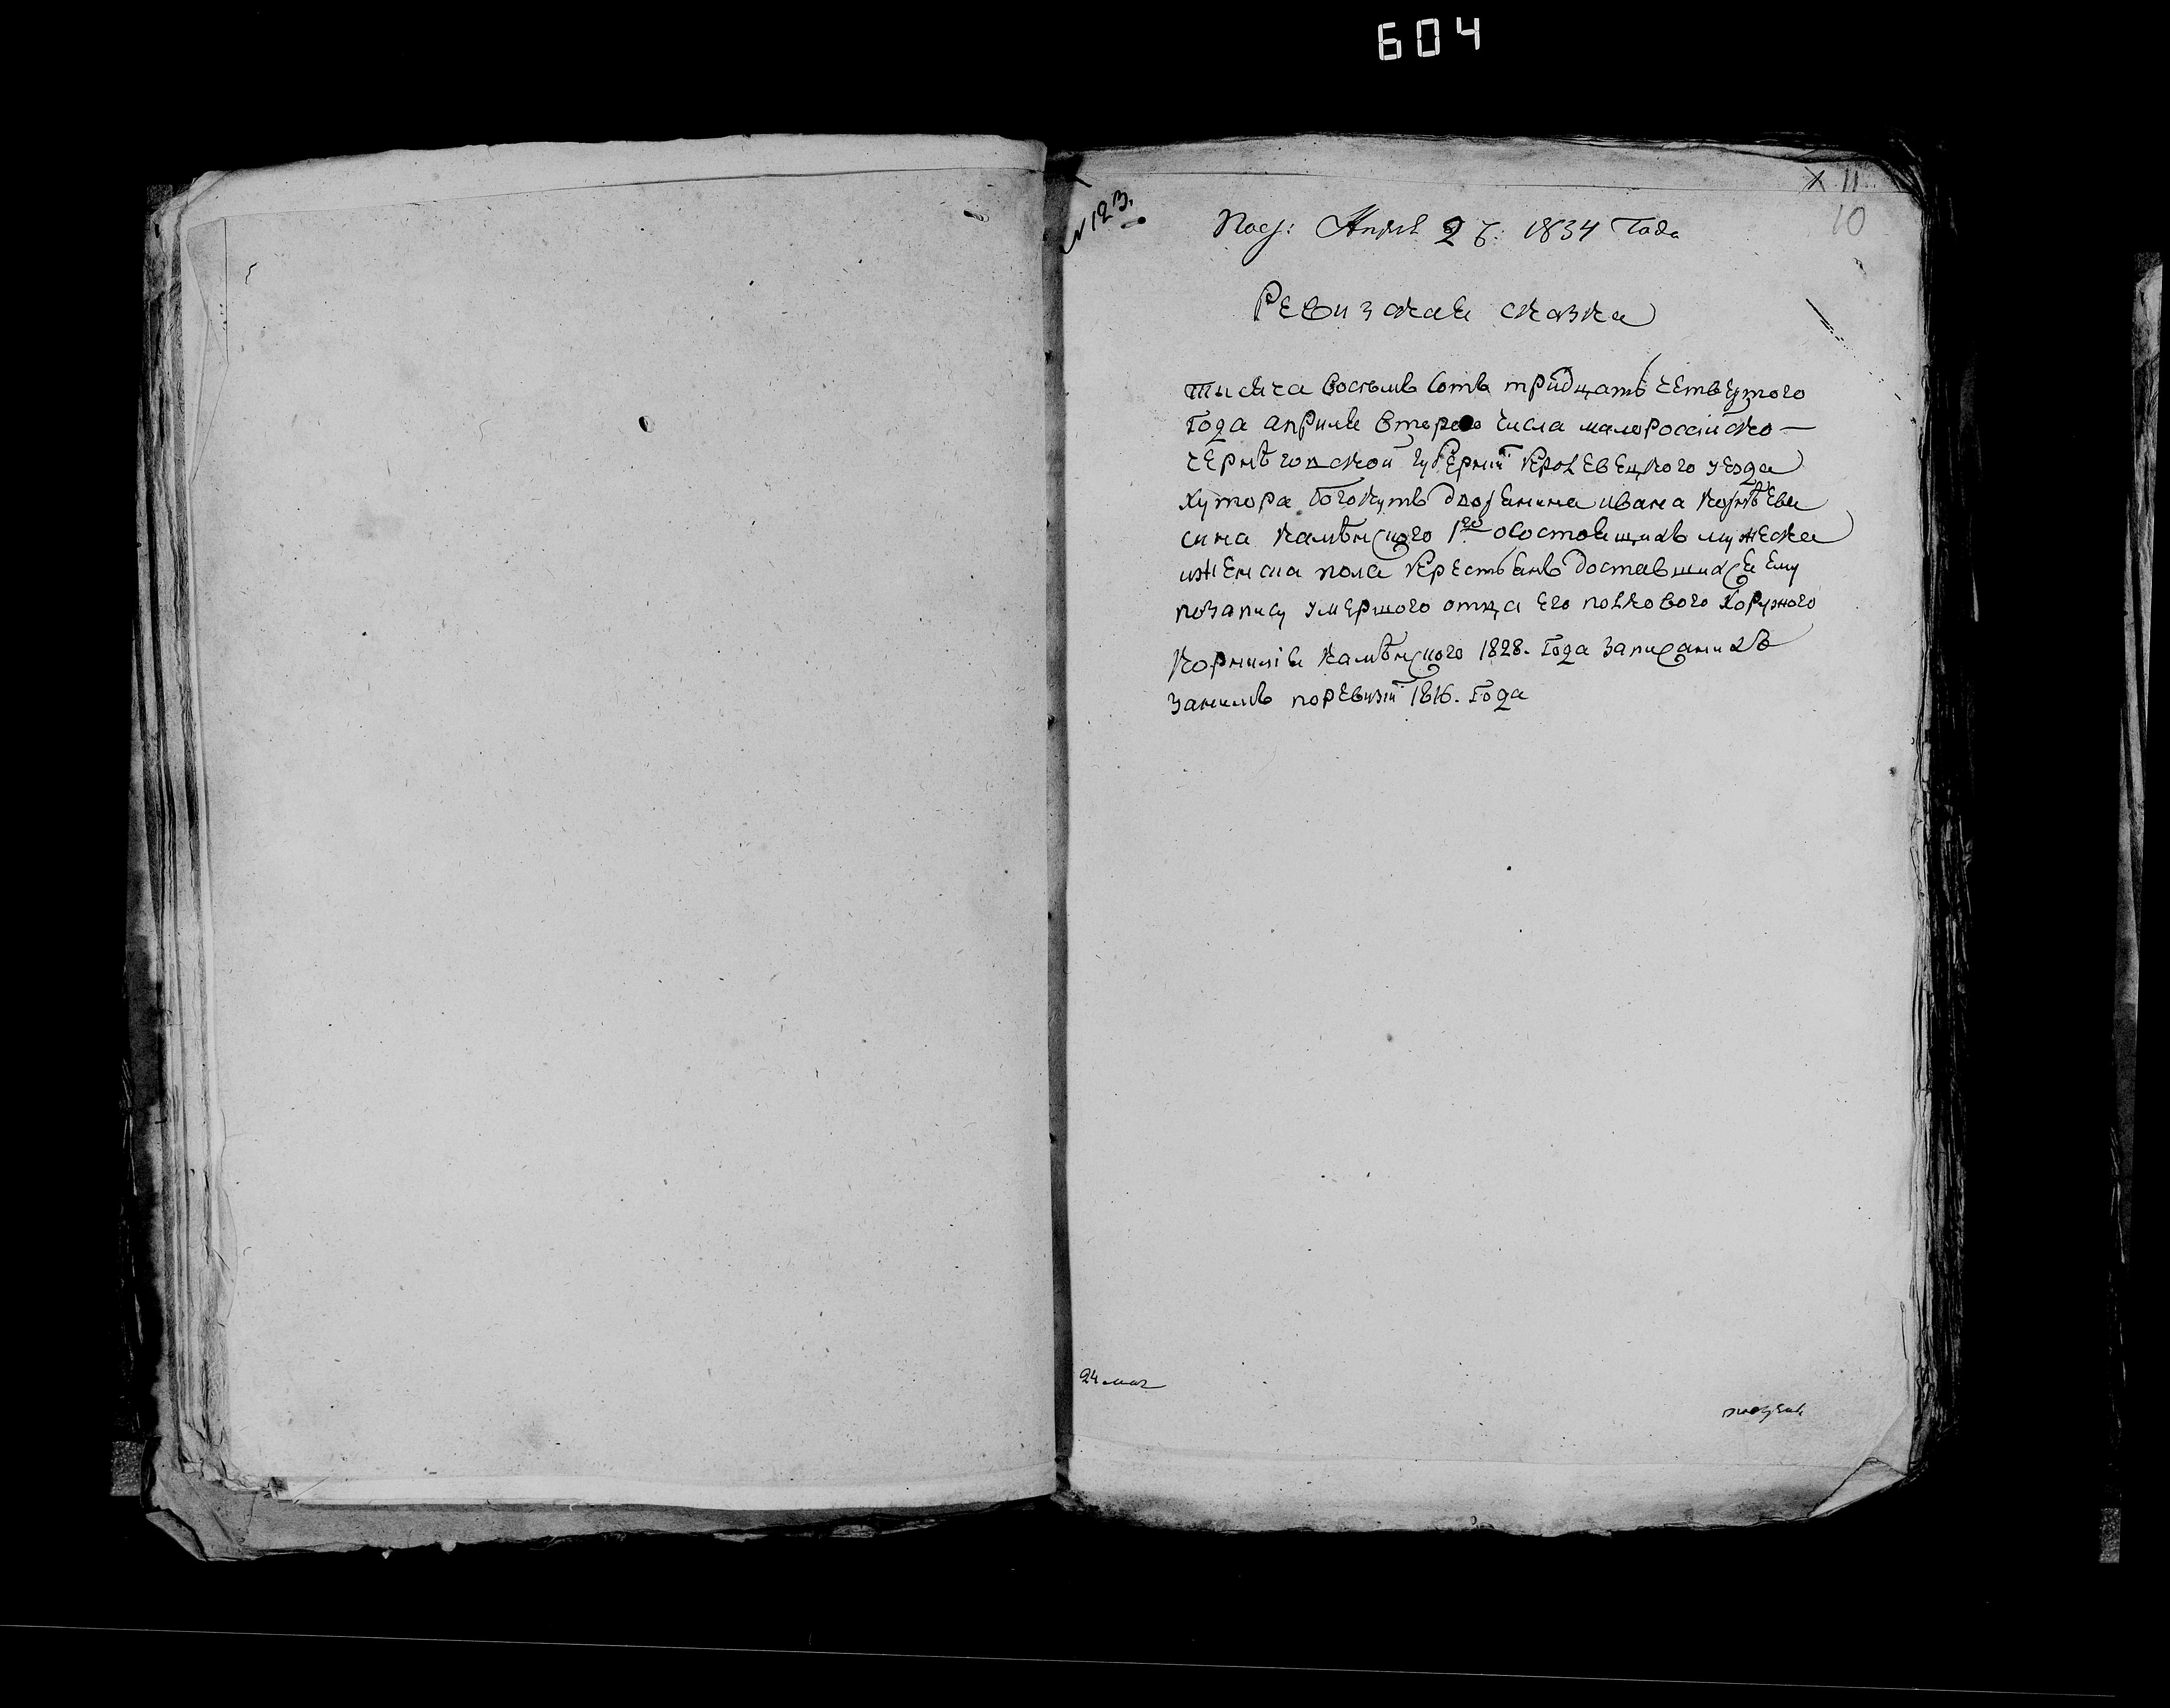 604
№ 123.
X 11
10
Апреля 2 1834 Года
Ревизская сказка
тысяча восемъ сотъ тридцать четвертого
Года априля второго числа малоросейско —
чернѣговской губернїи кролевецкого уезда
хутора дворянина ивана корнѣева
сина камѣнского 1го осостоящихъ мужеска
иженска пола крестьянъ доставшихся ему
позапису умершого отца его полкового хоружого
корнилія камѣнского 1828. Года записанихъ
занимъ поревизїи 1816. Года
24